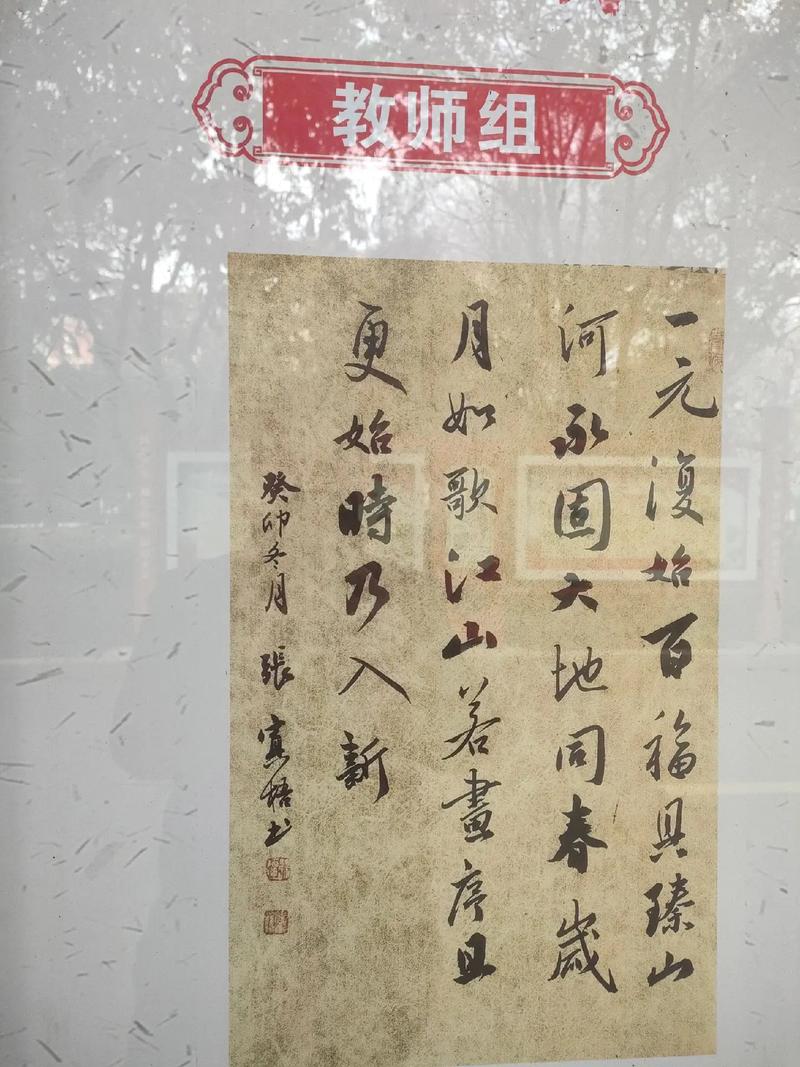 教师组
一元復始百福具臻山
河永固大地同春歲
月如歌江山若畫序且
更始時乃入新
癸卯冬月 張寅悟书